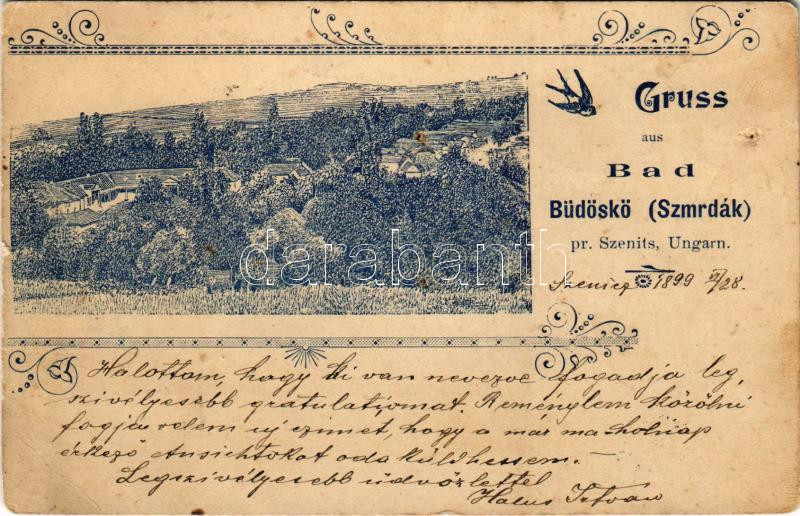 Gruss
aus
Bad
Büdöskö (Szmrdák)
pr. Szenits, Ungarn.
Szenicz 1899 VI/28.
darabanth
Halottam, hogy ki van nevezve fogadja leg,
szivélyesebb gratulatiomat. Reménylem közölni
fogja velem uj czimet, hogy a már ma-holnap
érkező Ansichtokat oda küldhessem.-
Legszivélyesebb üdvözlettel
István